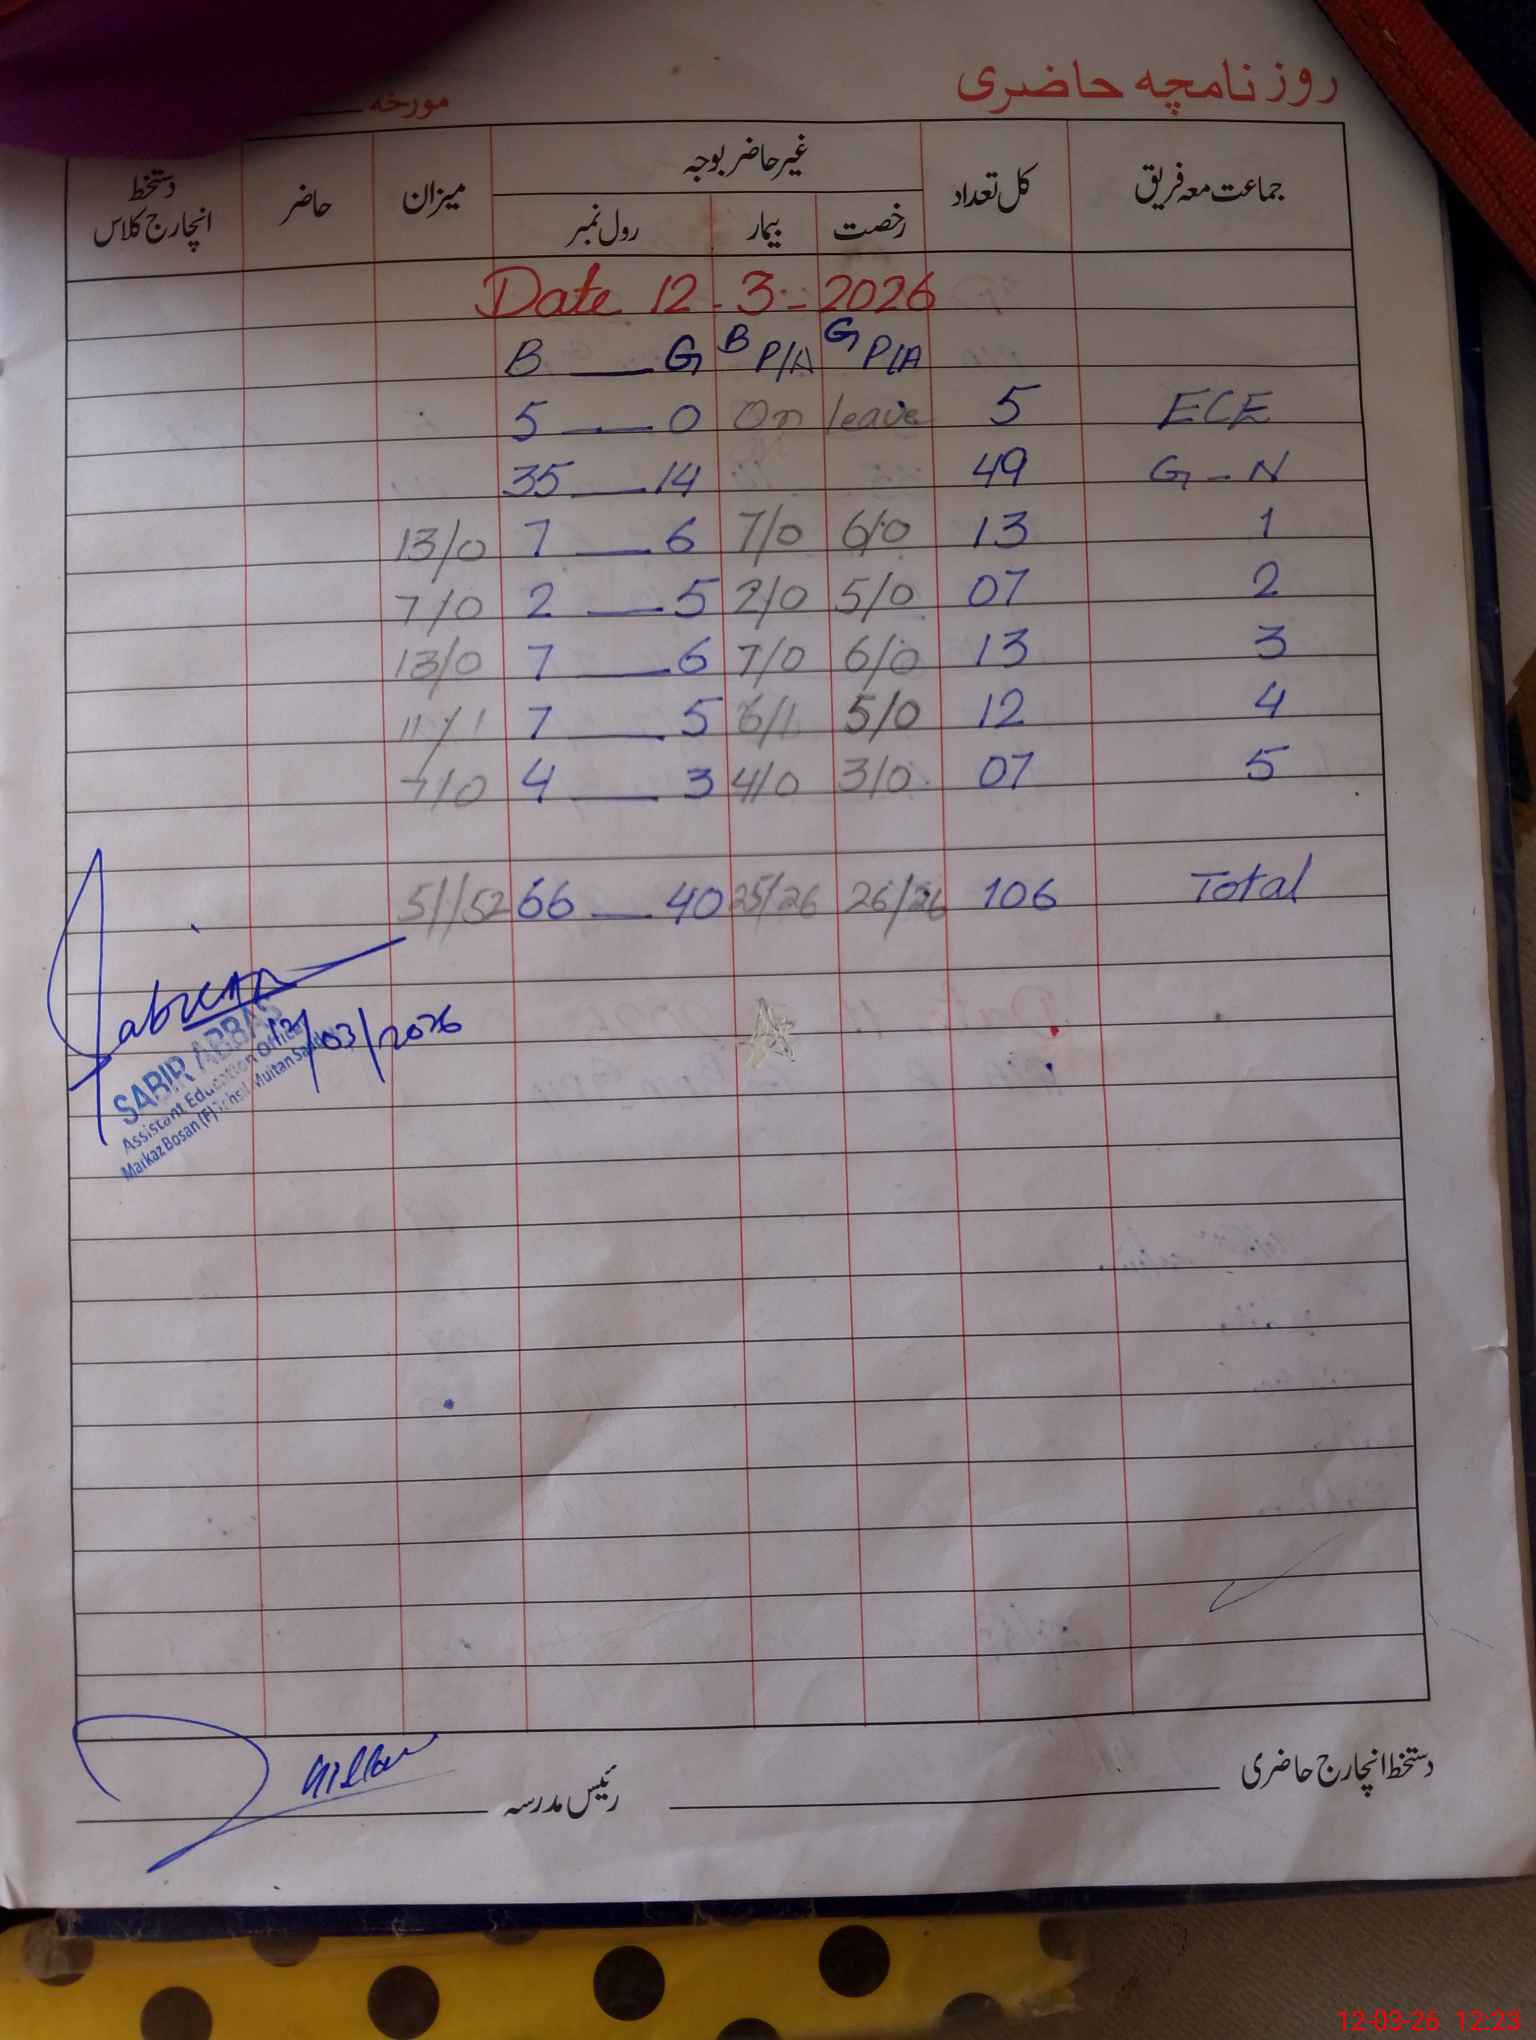 روز نامچہ حاضری مورخہ
جماعت معہ فریق کل تعداد غیر حاضر بوجہ میزان حاضر دستخط انچارج کلاس
رخصت بیمار رول نمبر
Date 12-3-2026
B — G B P/A G P/A
5 — 0 On leave 5 ECE
35 — 14 49 G-N
13/0 7 — 6 7/0 6/0 13 1
7/0 2 — 5 2/0 5/0 07 2
13/0 7 — 6 7/0 6/0 13 3
11/1 7 — 5 6/1 5/0 12 4
7/0 4 — 3 4/0 3/0 07 5
51/52 66 — 40 25/26 26/26 106 Total
12/03/2026
SABIR ABBAS
Assistant Education Officer
Markaz Bosan (F) Tehsil Multan Saddar
دستخط انچارج حاضری رئیس مدرسہ
12-03-26 12:23